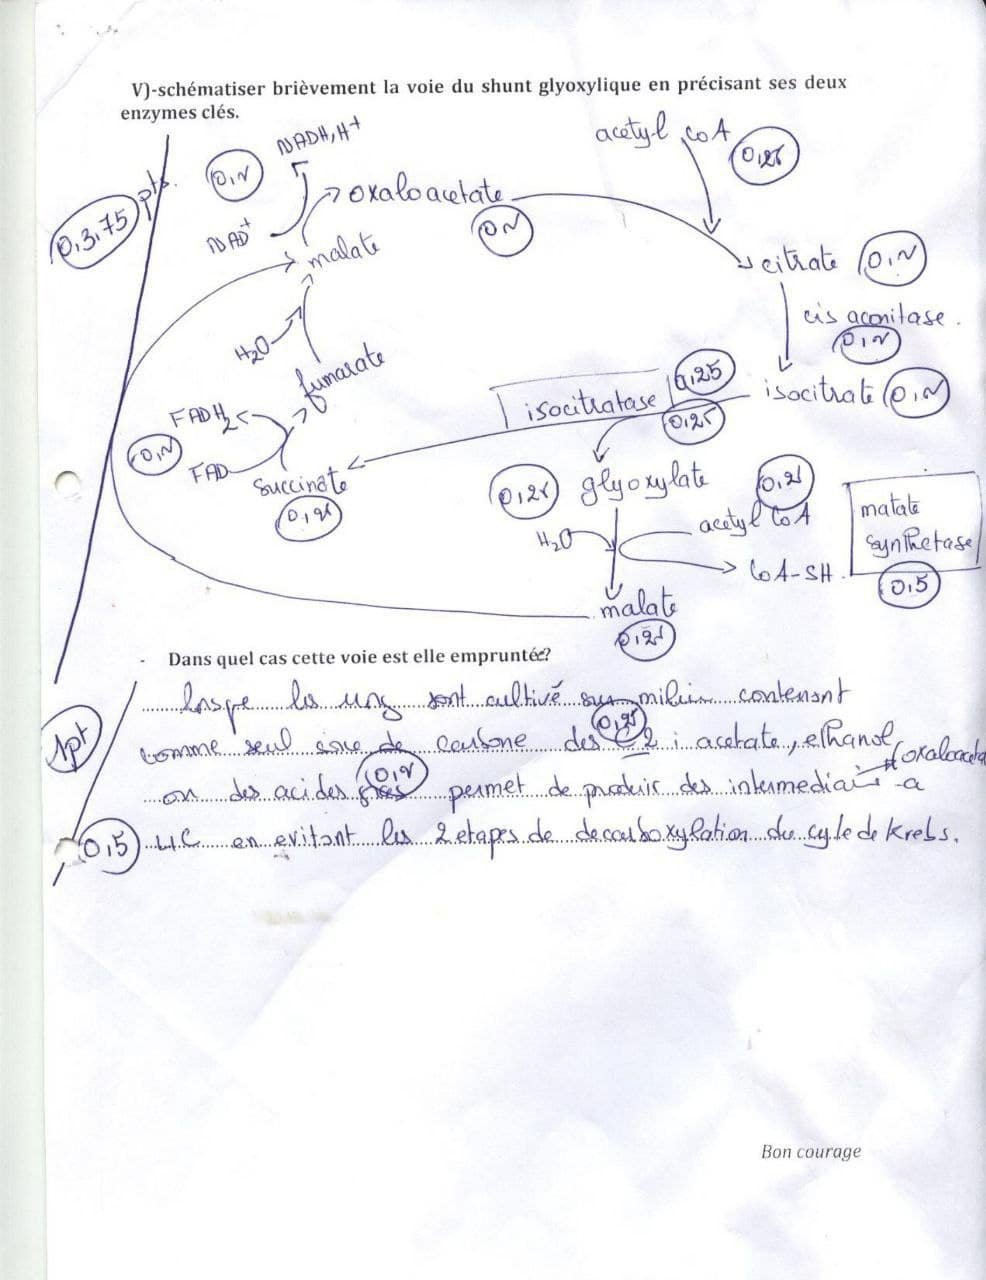 V)-schématiser brièvement la voie du shunt glyoxylique en précisant ses deux
enzymes clés.
NADH,H+
acetyl CoA
0,25
0,3,75 pts.
oxaloacetate
NAD+
malate
citrate
H2O
cis aconitase.
fumarate
0,25
isocitratase
isocitrate
FADH2
0,25
FAD
succinate
0,25
0,25
glyoxylate
0,25
acetyl CoA
matate
synthetase
H2O
CoA-SH.
0,5
malate
0,25
- Dans quel cas cette voie est elle empruntée?
les sont cultivé sur milieu contenant
1pt
0,25
comme seul de carbone des C2 : acetate, ethanol
(oxaloaceta
ou des acides gras permet de produire des intermediair a
0,5
4C en evitant les 2 etapes de decarboxylation du cycle de Krebs.
Bon courage